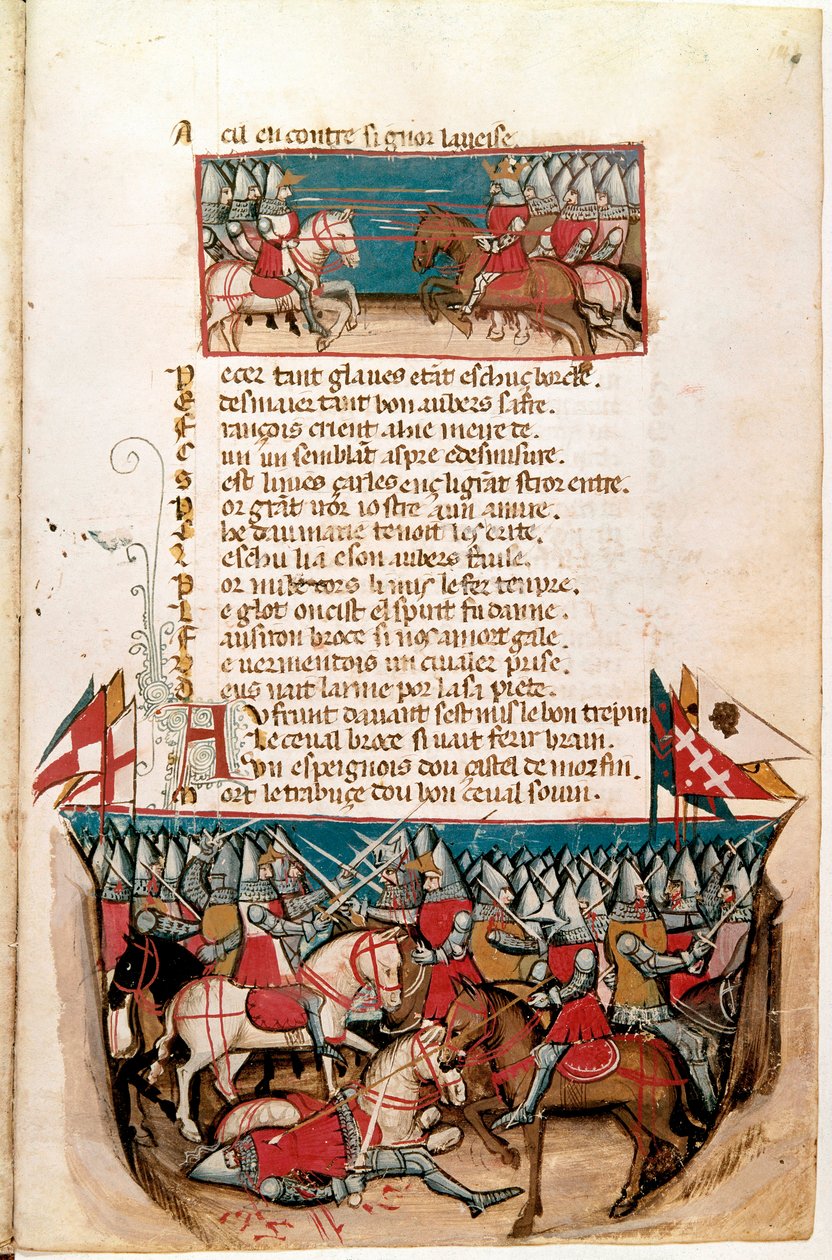 A cil encontre signor laveise.
P ecer tant glaves etāt eschuç borcle.
E desmaier tant bon aubers safre.
F rançois crient a hie
E un un semblāt aspre edesmisure.
S est livies çarles en çligrāt estor entre.
P or grāt iostre
L be daumarie tenoit
L eschu li a eson aubers fause.
P or mile cors li mis le fer tenpre.
L e glot oncist el spirit fu danne.
F ausiron broce si nos a mort gale.
D e vermentois un civaler prise.
D eus nait larme por la sa piete.
A V frunt davant sest mis le bon trepin
L e ceval broce si vait ferir brain.
V n espeignois dou castel de morfin.
M ort le trabuçe dou bon ceval sovin.